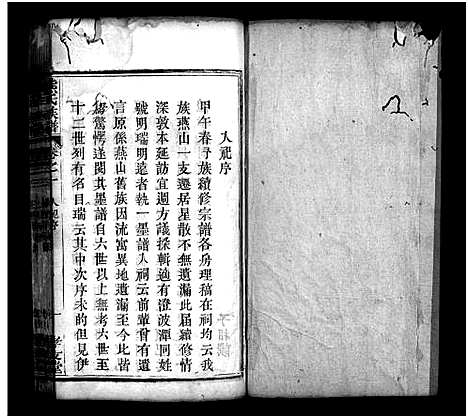 入祀序
甲午春予族續修宗譜各房理稿在祠均云我
族燕山一支遷居星散不無遺漏此屆續修情
深敦本延訪宜週方議採輯適有澄波源同姓
號瑞明遠者執一墨譜入祠云前輩曾有遺
言原係燕山舊族因流寓異地遺漏至今比皆
驚愕遂閱其墨譜自六世以上無考六世至
十三世列有名目瑞云其中次序未的但見伊